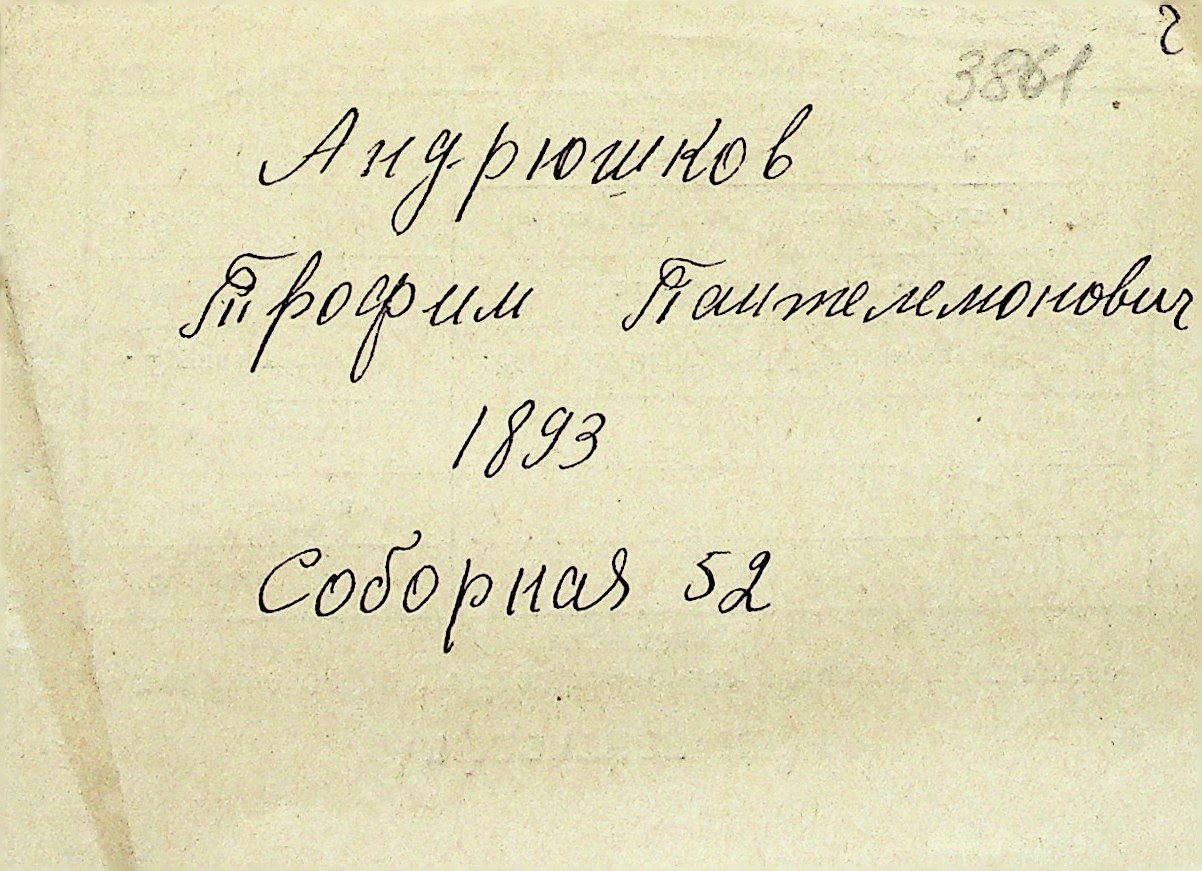 3861
Андрюшков
Трофим Пантелемонович
1893
Соборная 52